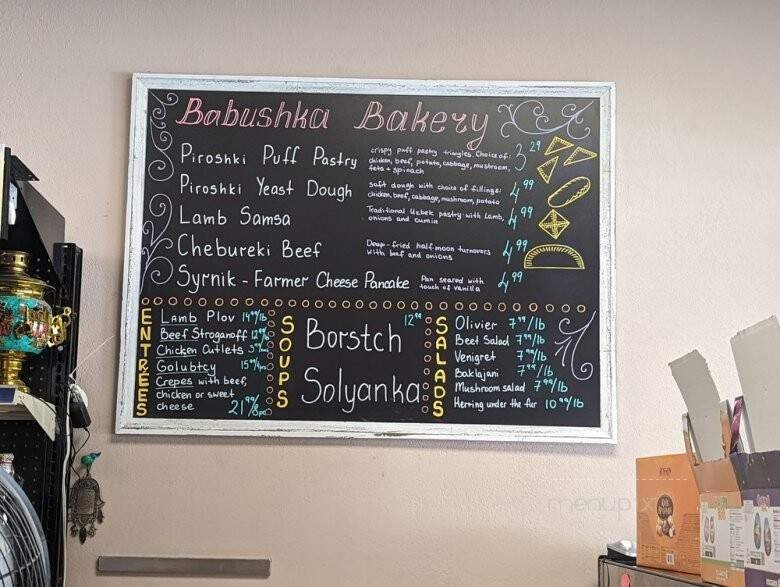 Babushka Bakery
Piroshki Puff Pastry crispy puff pastry triangles. Choice of: 3 29
chicken, beef, potato, cabbage, mushroom,
feta + spinach
Piroshki Yeast Dough soft dough with choice of fillings: 4 99
chicken, beef, cabbage, mushroom, potato
Lamb Samsa Traditional Uzbek pastry with Lamb, 4 99
onions and cumin
Chebureki Beef Deep-fried half moon turnovers 4 99
with beef and onions
Syrnik - Farmer Cheese Pancake Pan seared with 4 99
touch of vanilla
ENTREES
Lamb Plov 14 99/lb
Beef Stroganoff
Chicken Cutlets
Golubtcy
Crepes with beef,
chicken or sweet
cheese 21 99
SOUPS
Borstch 12 99
Solyanka
SALADS
Olivier 7 99/lb
Beet Salad 7 99/lb
Venigret 7 99/lb
Baklajani 7 99/lb
Mushroom salad 7 99/lb
Herring under the fur 10 99/lb
menupix